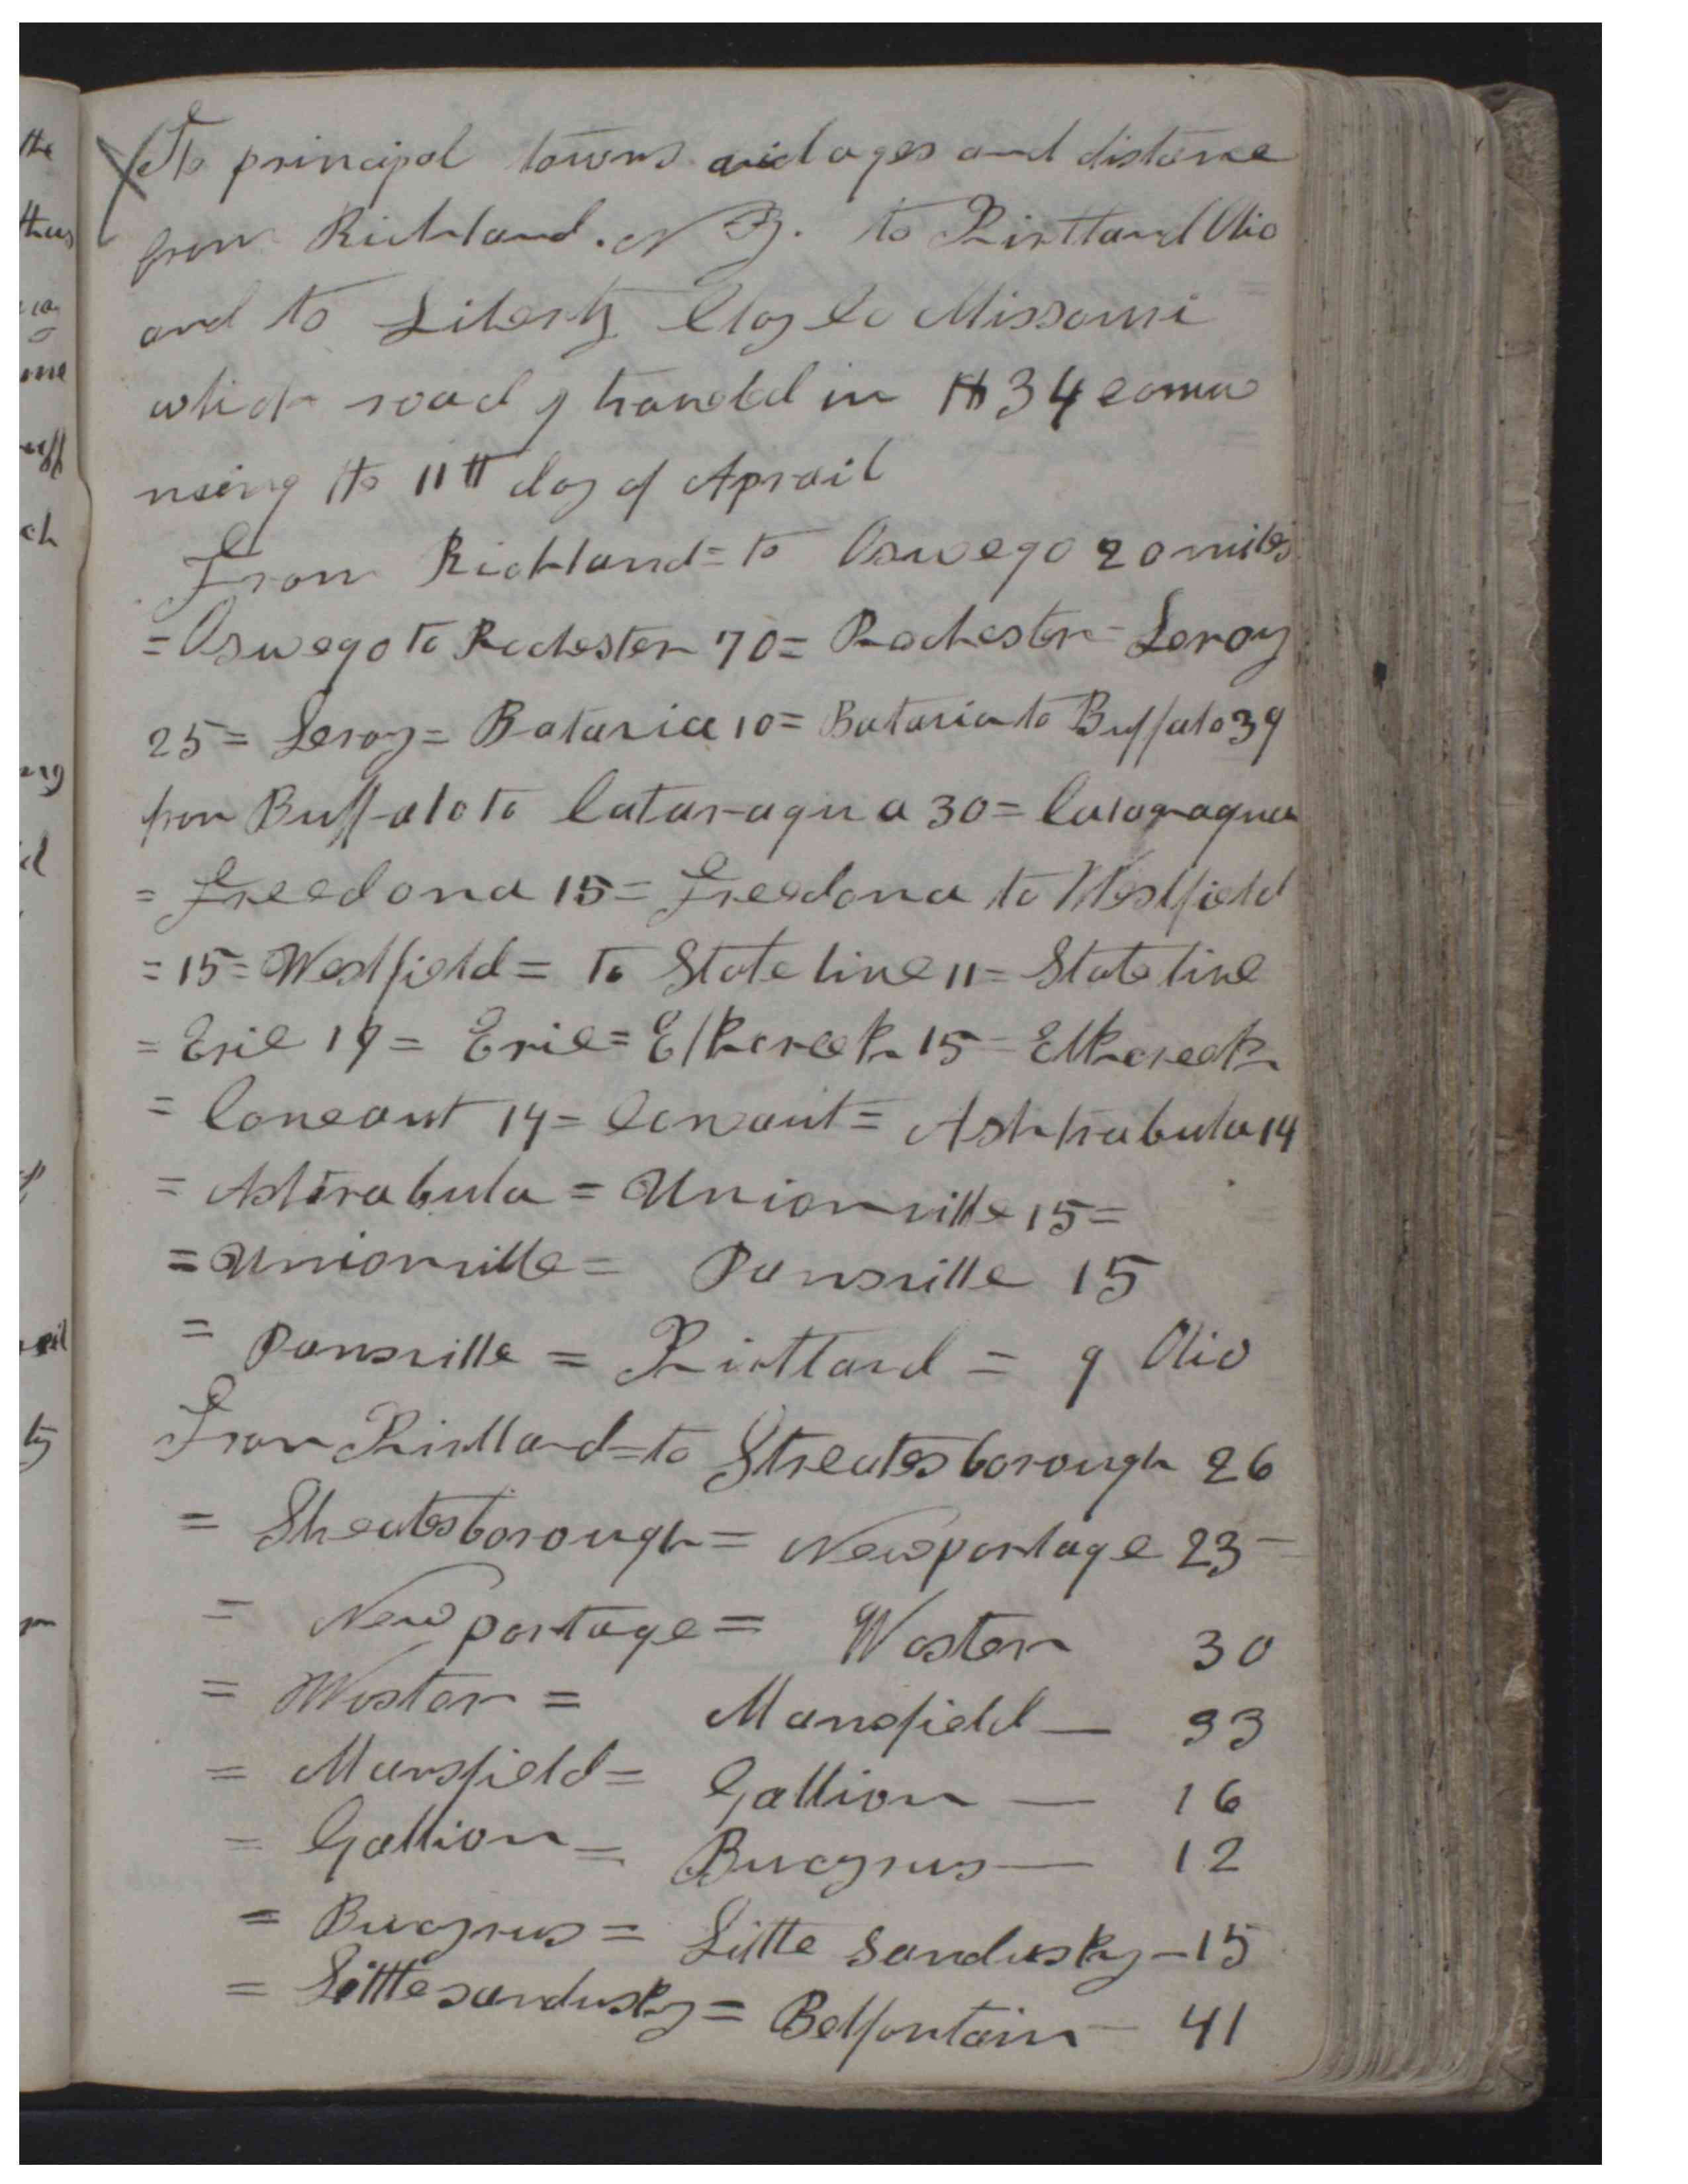 The principal towns vilages and distance
from Richland. N Y. to Kirtland Ohio
and to Liberty Clay Co Missouri
which road I traveled in 1834 comm
nsing the 11th day of Aprail
From Richland = to Oswego 20 miles
= Oswego to Rochester 70 = Rochester = Leroy
25 = Leroy = Batavia 10 = Batavia to Buffalo 39
from Buffalo to Cataraugua 30 =
= Freedona 15 = Freedona to Westfield
= 15 = Westfield = to State line 11 = State line
= Erie 19 = Erie = Elkcreek 15 = Elkcreek
= Coneaut 14 = Coneaut = Ashtrabula 14
= Ashtrabula = Unionville 15 =
= Unionville = Pansville 15
= Pansville = Kirtland = 9 Ohio
From Kirtland = to Streatesborough 26
= Streatesborough = Newportage 23 –
= New portage = Woster 30
= Woster = Mansfield — 33
= Mansfield = Gallion — 16
= Gallion = Bucyrus — 12
= Bucyrus = Little Sandusky – 15
= Little sandusky = Belfontain – 41
the
thus
me
ch
ing
ty